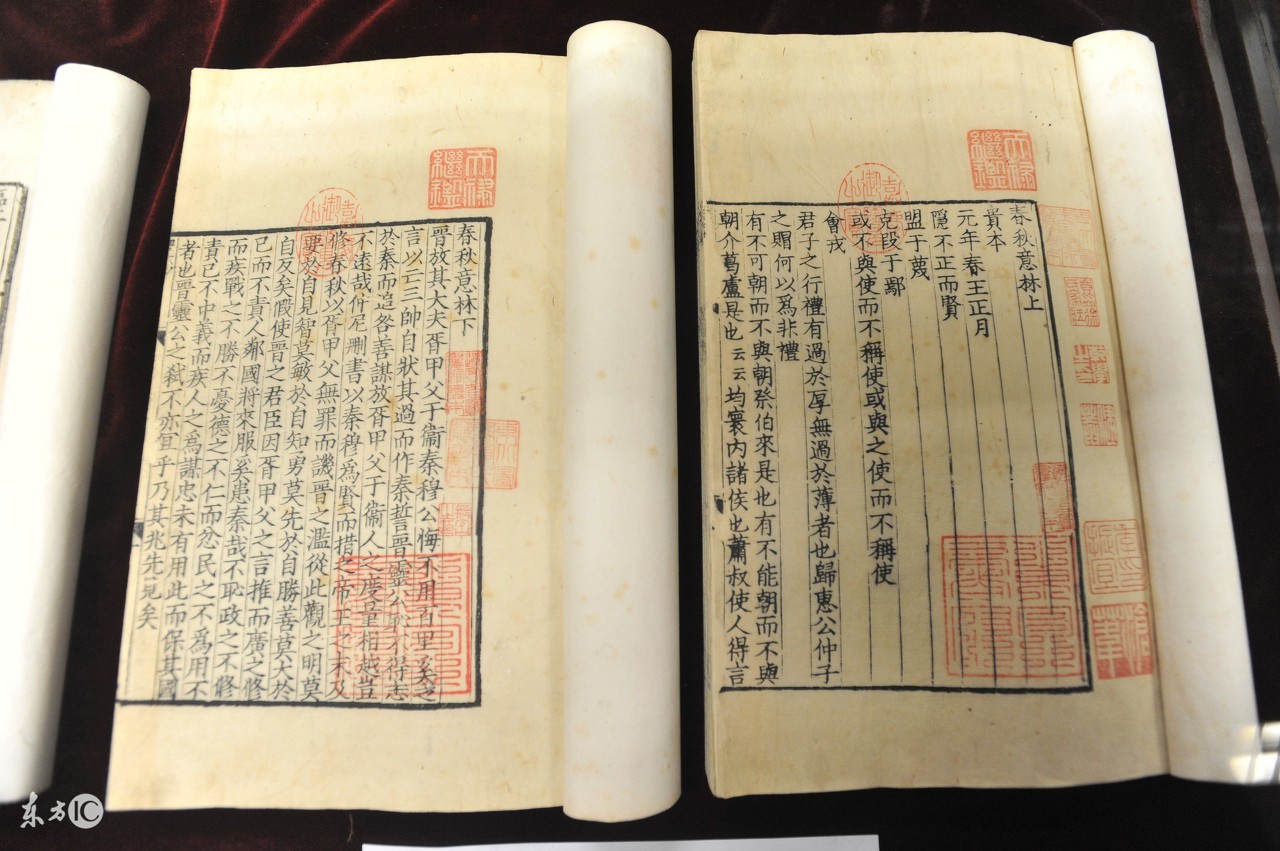 春秋意林上
貴本
元年春王正月
隱不正而賢
盟于蔑
克段于鄢
或不與使而不稱使或與之使而不稱使
會戎
君子之行禮有過於厚無過於薄者也歸惠公仲子
之賵何以爲非禮
有不可朝而不與朝祭伯來是也有不能朝而不與
朝介葛盧是也云云均寰内諸侯也蕭叔使人得言
春秋意林下
晉放其大夫胥甲父于衞秦穆公悔不用百里奚之
言以亡三帥自狀其過而作秦誓晉靈公不得志
於秦而追咎善謀放胥甲父于衞人之度量相越豈
不遠哉仲尼刪書以秦穆爲賢而措之帝王之末及
修春秋以胥甲父無罪而譏晉之濫從此觀之明莫
要於自見智莫敏於自知勇莫先於自勝善莫大於
自反矣假使晉之君臣因胥甲父之言推而廣之修
己而不責人鄰國將來服奚患秦哉不恥政之不修
而疾戰之不勝不憂德之不仁而忿民之不爲用不
責己不中義而疾人之爲謀忠未有用此而保其國
者也晉靈公之弑不亦宜乎乃其兆先見矣
天祿
繼鑑
天祿
繼鑑
东方IC